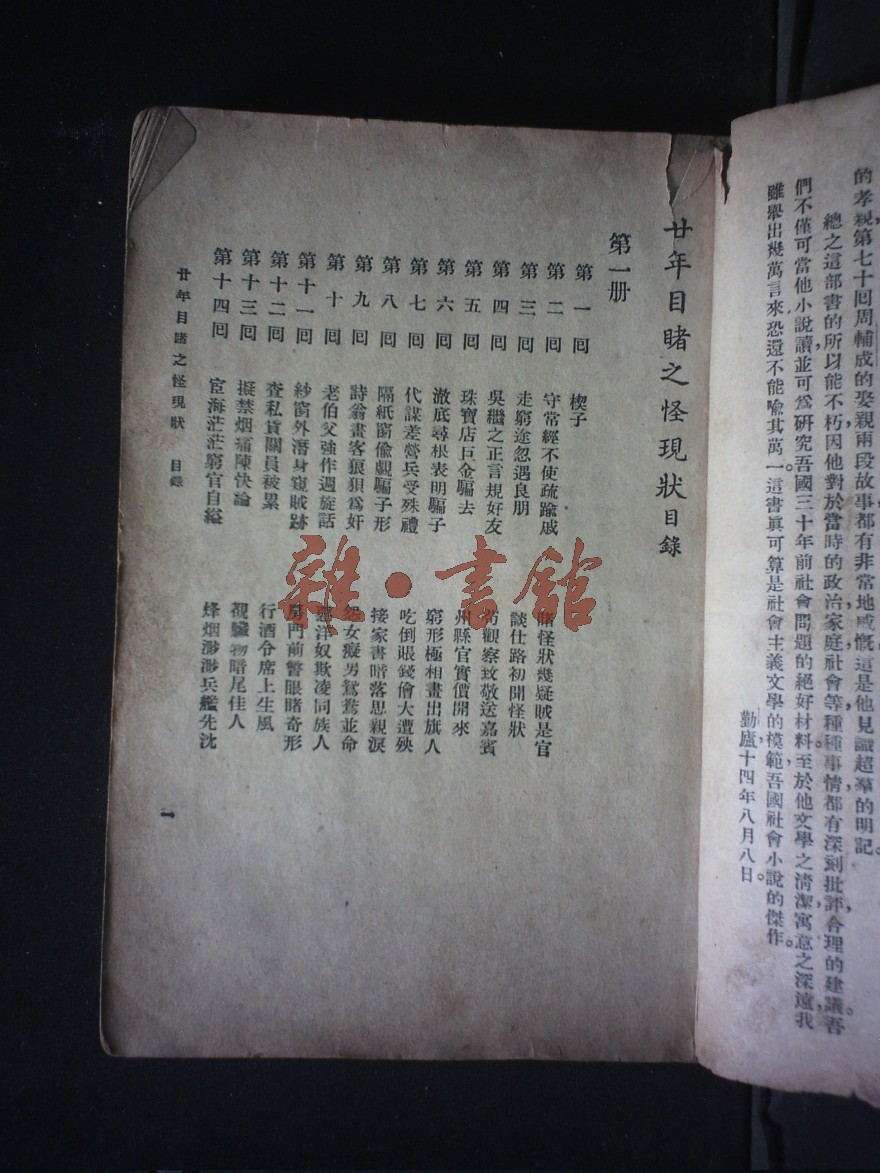 的孝親第七十回周輔成的娶親兩段故事都有非常地感慨這是他見識超羣的明記。
總之這部書的所以能不朽因他對於當時的政治家庭社會等種種事情都有深刻批評合理的建議。吾
們不僅可當他小說讀並可爲硏究吾國三十年前社會問題的絕好材料至於他文學之清潔寓意之深遠我
雖舉出幾萬言來恐還不能喩其萬一。這書眞可算是社會主義文學的模範吾國社會小說的傑作。
勤廬十四年八月八日。
廿年目睹之怪現狀目錄
第一册
第一回 楔子
第二回 守常經不使疏踰戚 怪狀幾疑賊是官
第三回 走窮途忽遇良朋 談仕路初聞怪狀
第四回 吳繼之正言規好友 苟觀察致敬送嘉賓
第五回 珠寶店巨金騙去 州縣官實價開來
第六回 澈底尋根表明騙子 窮形極相畫出旗人
第七回 代謀差營兵受殊禮 吃倒賬錢儈大遭殃
第八回 隔紙窗偷覷騙子形 接家書暗落思親淚
第九回 詩翁畫客狼狽爲奸 怨女癡男鴛鴦並命
第十回 老伯父強作週旋話 惡洋奴欺凌同族人
第十一回 紗窗外潛身窺賊跡 房門前警眼睹奇形
第十二回 查私貨關員被累 行酒令席上生風
第十三回 擬禁烟痛陳快論 覩贜物暗尾佳人
第十四回 宦海茫茫窮官自縊 烽烟渺渺兵艦先沈
廿年目睹之怪現狀 目錄
一
雜·書館